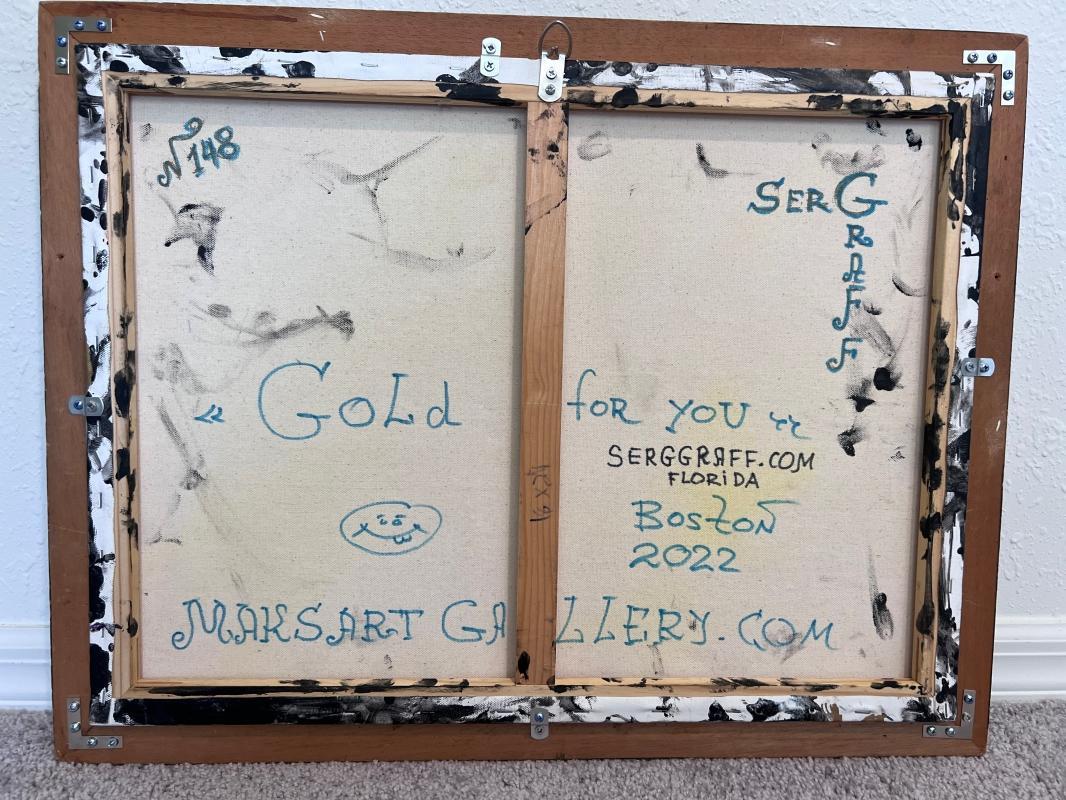 N 148
SERG
GRAFF
« GOLd FOR YOU «
SERGGRAFF.COM
FLORiDA
BOSTON
2022
MAKSART GALLERY.COM